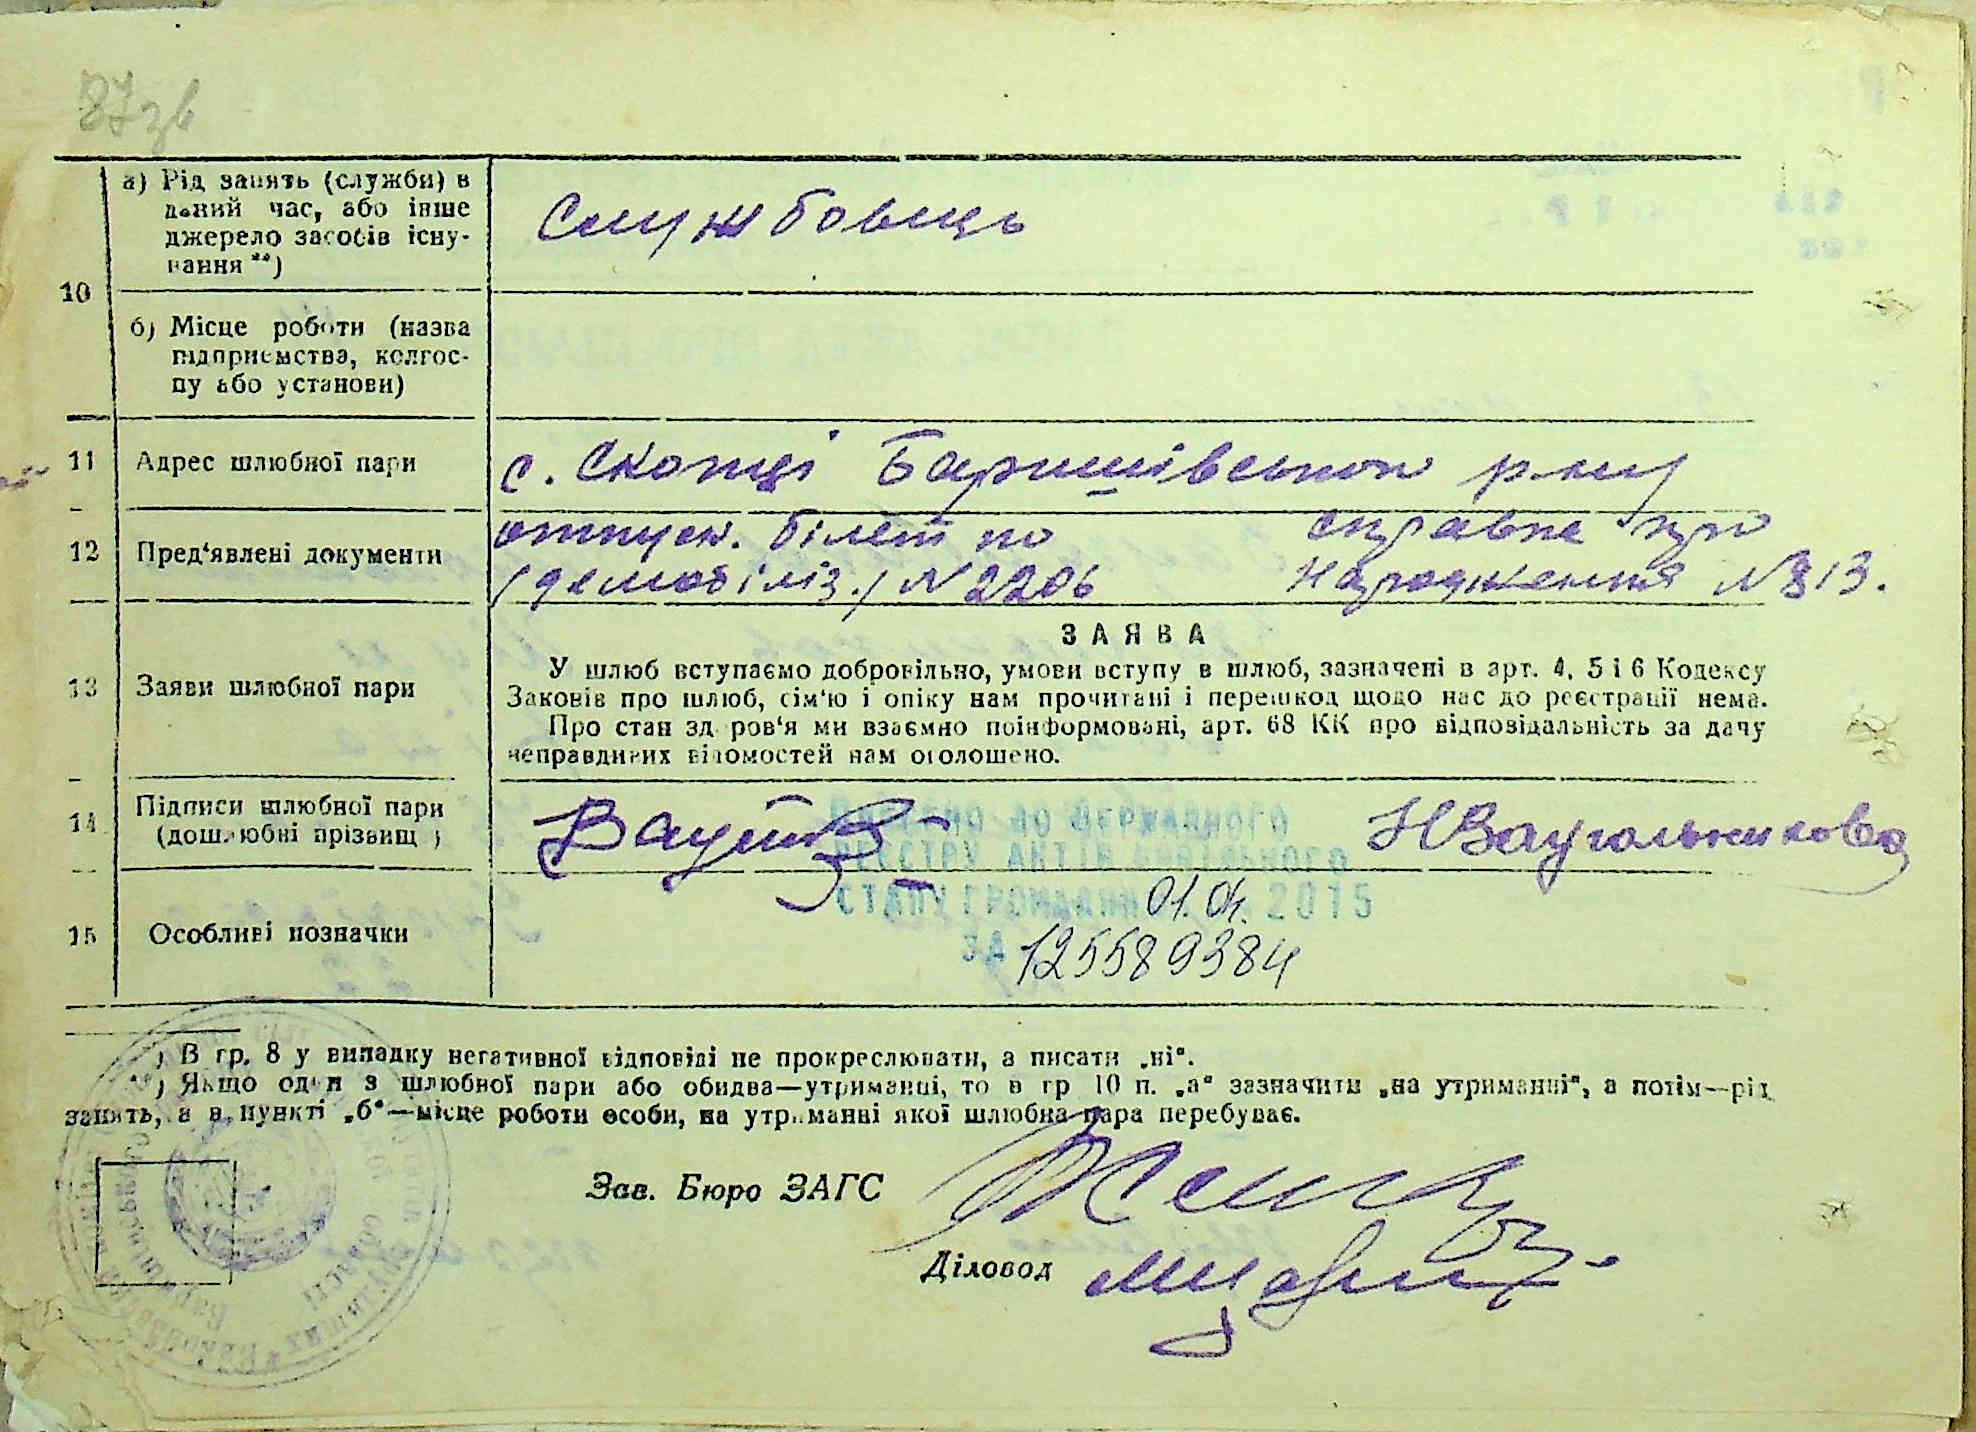 87зв
а) Рід занять (служби) в
даний час, або інше
джерело засобів існу-
вання **)
Службовець
10
б) Місце роботи (назва
підприємства, колгос-
пу або установи)
11 Адрес шлюбної пари
с. Скопці Баришівського р-ну
12 Пред‘явлені документи
отпуск. білет по справка про
/демобіліз./ N 2206 народження N 813.
13 Заяви шлюбної пари
ЗАЯВА
У шлюб вступаємо добровільно, умови вступу в шлюб, зазначені в арт. 4, 5 і 6 Кодексу
Законів про шлюб, сім‘ю і опіку нам прочитані і перешкод щодо нас до реєстрації нема.
Про стан здоров‘я ми взаємно поінформовані, арт. 68 КК про відповідальність за дачу
неправдивих відомостей нам оголошено.
14 Підписи шлюбної пари
(дошлюбні прізвищ )
НЗаугольникова
ВНЕСЕНО ДО ДЕРЖАВНОГО
РЕЄСТРУ АКТІВ ЦИВІЛЬНОГО
СТАНУ ГРОМАДЯН 01.04. 2015
ЗА 125589384
15 Особливі позначки
*) В гр. 8 у випадку негативної відповіді не прокреслювати, а писати „ні“.
**) Якщо один з шлюбної пари або обидва—утриманці, то в гр 10 п. „а“ зазначити „на утриманні“, а потім—рід
занять, а в пункті „б“—місце роботи особи, на утриманні якої шлюбна пара перебуває.
Зав. Бюро ЗАГС
Діловод